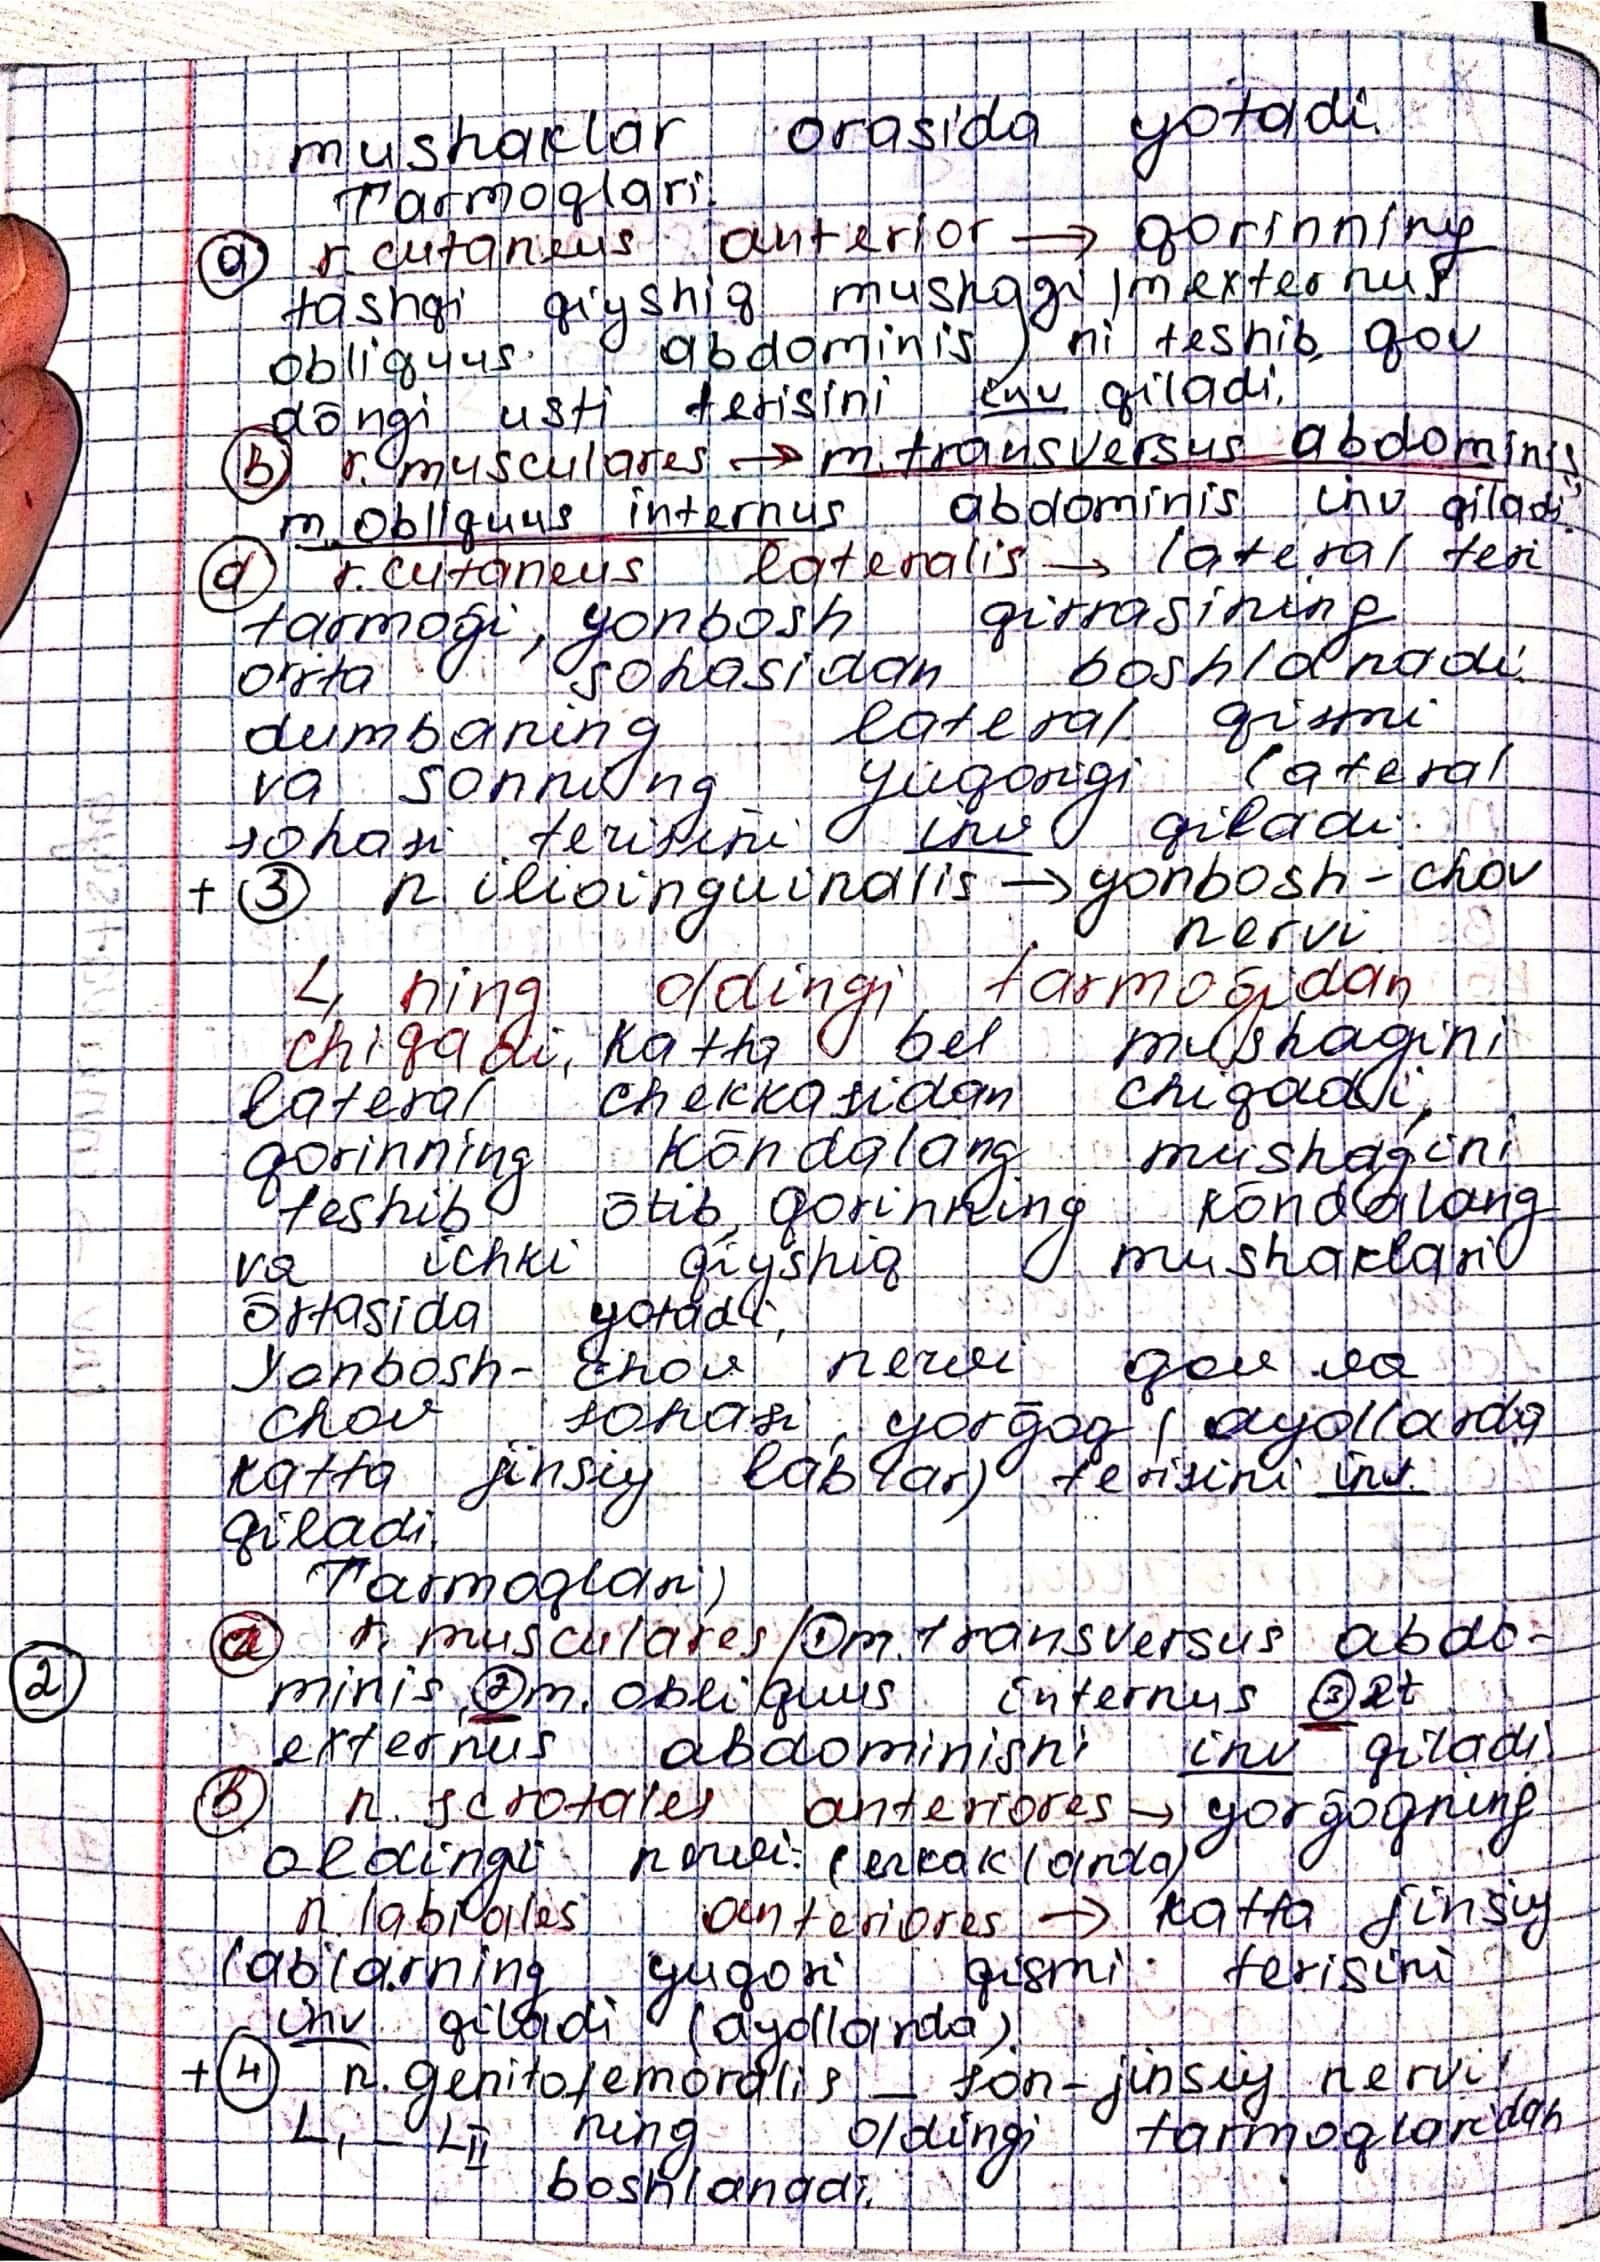 mushaklar orasida yotadi.
Tarmoqlari:
ⓐ r. cutaneus anterior → qorinning
tashqi qiyshiq mushagi (m externus
obliquus abdominis) ni teshib, qov
dōngi usti terisini inv qiladi.
ⓑ r. musculares → m. transversus abdominis,
m. obliquus internus abdominis inv qiladi.
ⓓ r. cutaneus lateralis → lateral teri
tarmoḡi, yonbosh qirrasining
o'rta sohasidan boshlanadi.
dumbaning lateral qismi
va sonning yuqorigi lateral
sohasi terisini inv qiladi.
+ ③ n ilioinguinalis → yonbosh-chov
nervi
L₁ ning oldingi tarmoḡidan
chiqadi, katta bel mushagini
lateral chekkasidan chiqadi,
qorinning kōndalang mushagini
teshib ōtib, qorinning kōndalang
va ichki qiyshiq mushaklari
ōrtasida yotadi,
Yonbosh-chov nervi qov va
chov sohasi, yorḡoq (ayollarda
katta jinsiy lablar) terisini inv.
qiladi.
Tarmoqlari;
ⓐ r. musculares/①m. transversus abdo-
② minis, ②m. obliquus internus ③et
externus abdominisni inv qiladi
ⓑ n. scrotales anteriores → yorḡoqning
oldingi nervi. (erkaklarda)
n labiales anteriores → katta jinsiy
lablarning yuqori qismi terisini
inv qiladi (ayollarda)
+ ④ n. genitofemoralis – son-jinsiy nervi
L₁ – L_II ning oldingi tarmoqlaridan
boshlanadi.